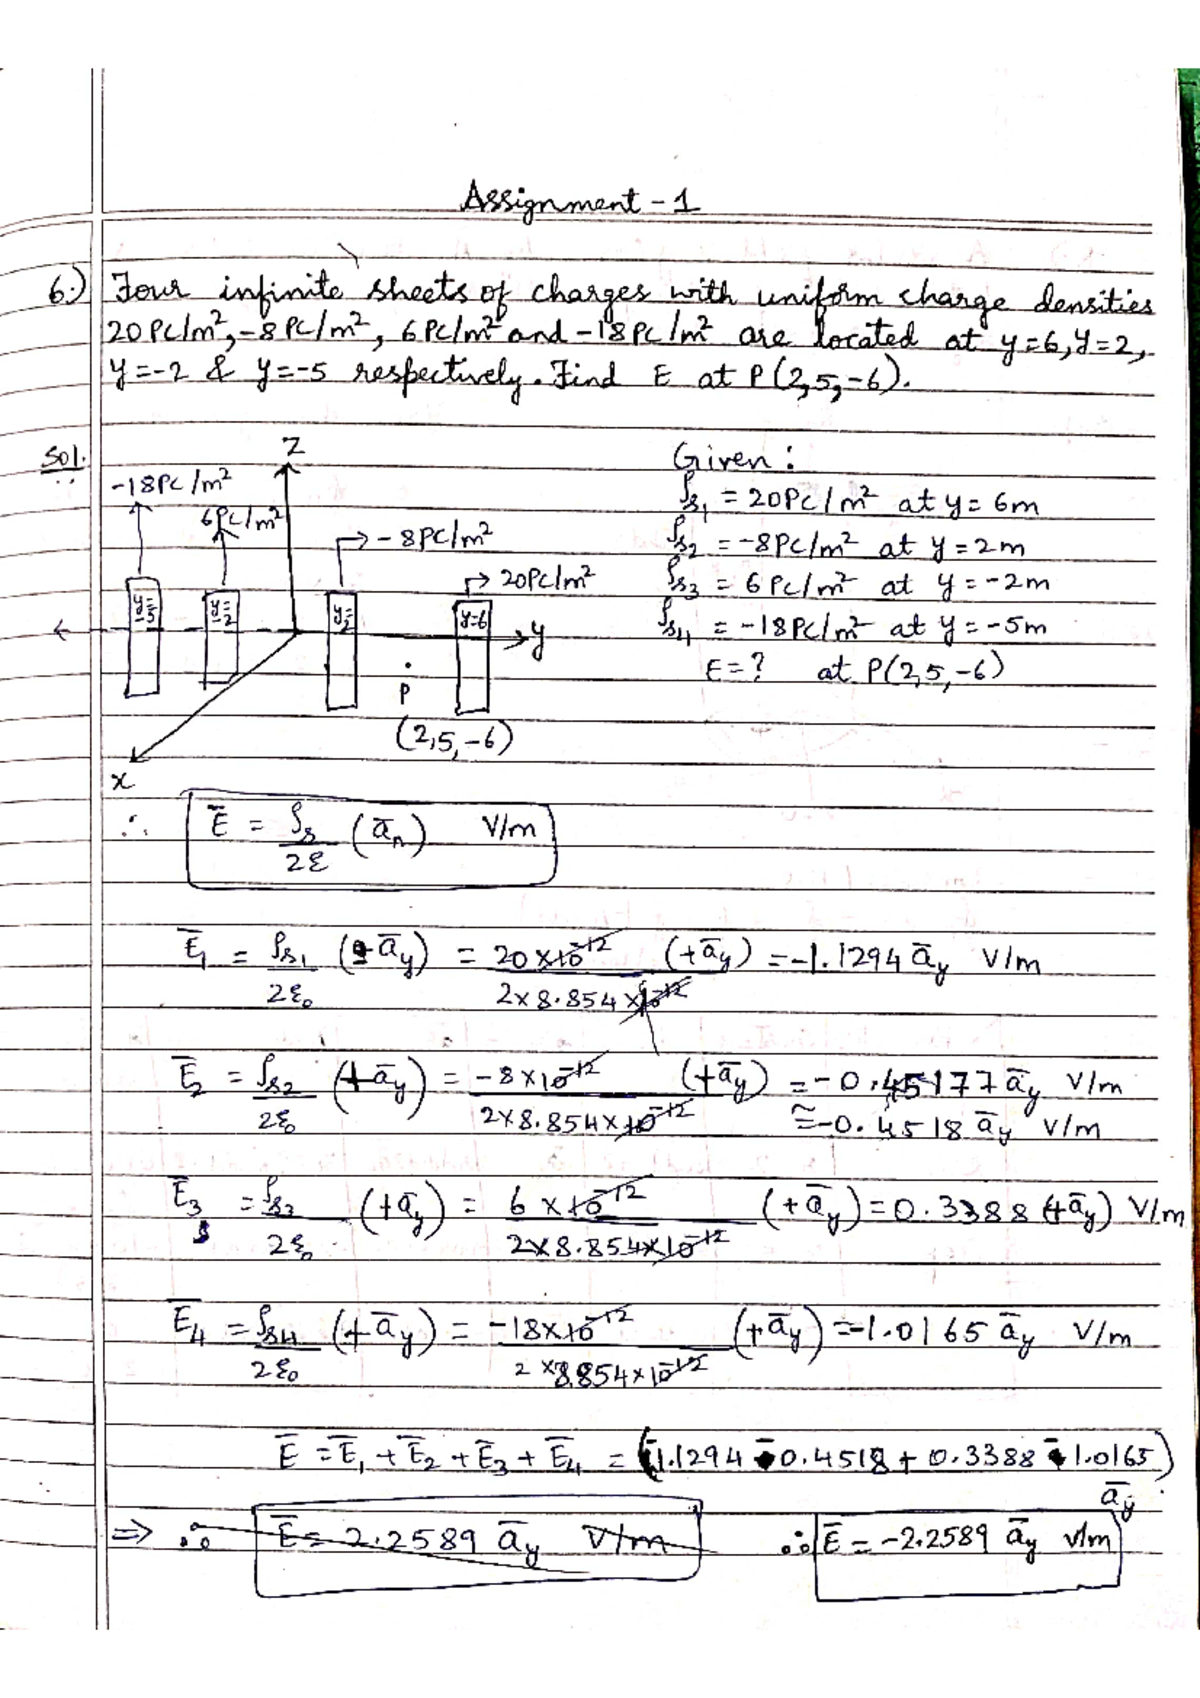 Assignment - 1
6.) Four infinite sheets of charges with uniform charge densities
20 PC/m², -8 PC/m², 6 PC/m² and -18 PC/m² are located at y=6, y=2,
y=-2 & y=-5 respectively. Find E at P(2,5,-6).
Sol.
Z
-18PC/m²
6PC/m²
→ -8PC/m²
→ 20PC/m²
y=-5
y=-2
y=2
y=6
y
P
(2,5,-6)
x
Given :
ρs₁ = 20PC/m² at y = 6m
ρs₂ = -8PC/m² at y = 2m
ρs₃ = 6PC/m² at y = -2m
ρs₄ = -18PC/m² at y = -5m
E = ? at P(2,5,-6)
∴ E̅ = ρs/2ε (a̅n) V/m
E̅₁ = ρs₁/2ε₀ (-a̅y) = 20×10⁻¹²/2×8.854×10⁻¹² (+a̅y) = -1.1294 a̅y V/m
E̅₂ = ρs₂/2ε₀ (+a̅y) = -8×10⁻¹²/2×8.854×10⁻¹² (+a̅y) = -0.45177 a̅y V/m
≅ -0.4518 a̅y V/m
E̅₃ = ρs₃/2ε₀ (+a̅y) = 6×10⁻¹²/2×8.854×10⁻¹² (+a̅y) = 0.3388 (+a̅y) V/m
E̅₄ = ρs₄/2ε₀ (+a̅y) = -18×10⁻¹²/2×8.854×10⁻¹² (+a̅y) = -1.0165 a̅y V/m
E̅ = E̅₁ + E̅₂ + E̅₃ + E̅₄ = (-1.1294 - 0.4518 + 0.3388 - 1.0165)
a̅y
⇒ ∴ E̅ = 2.2589 a̅y V/m ∴ E̅ = -2.2589 a̅y V/m